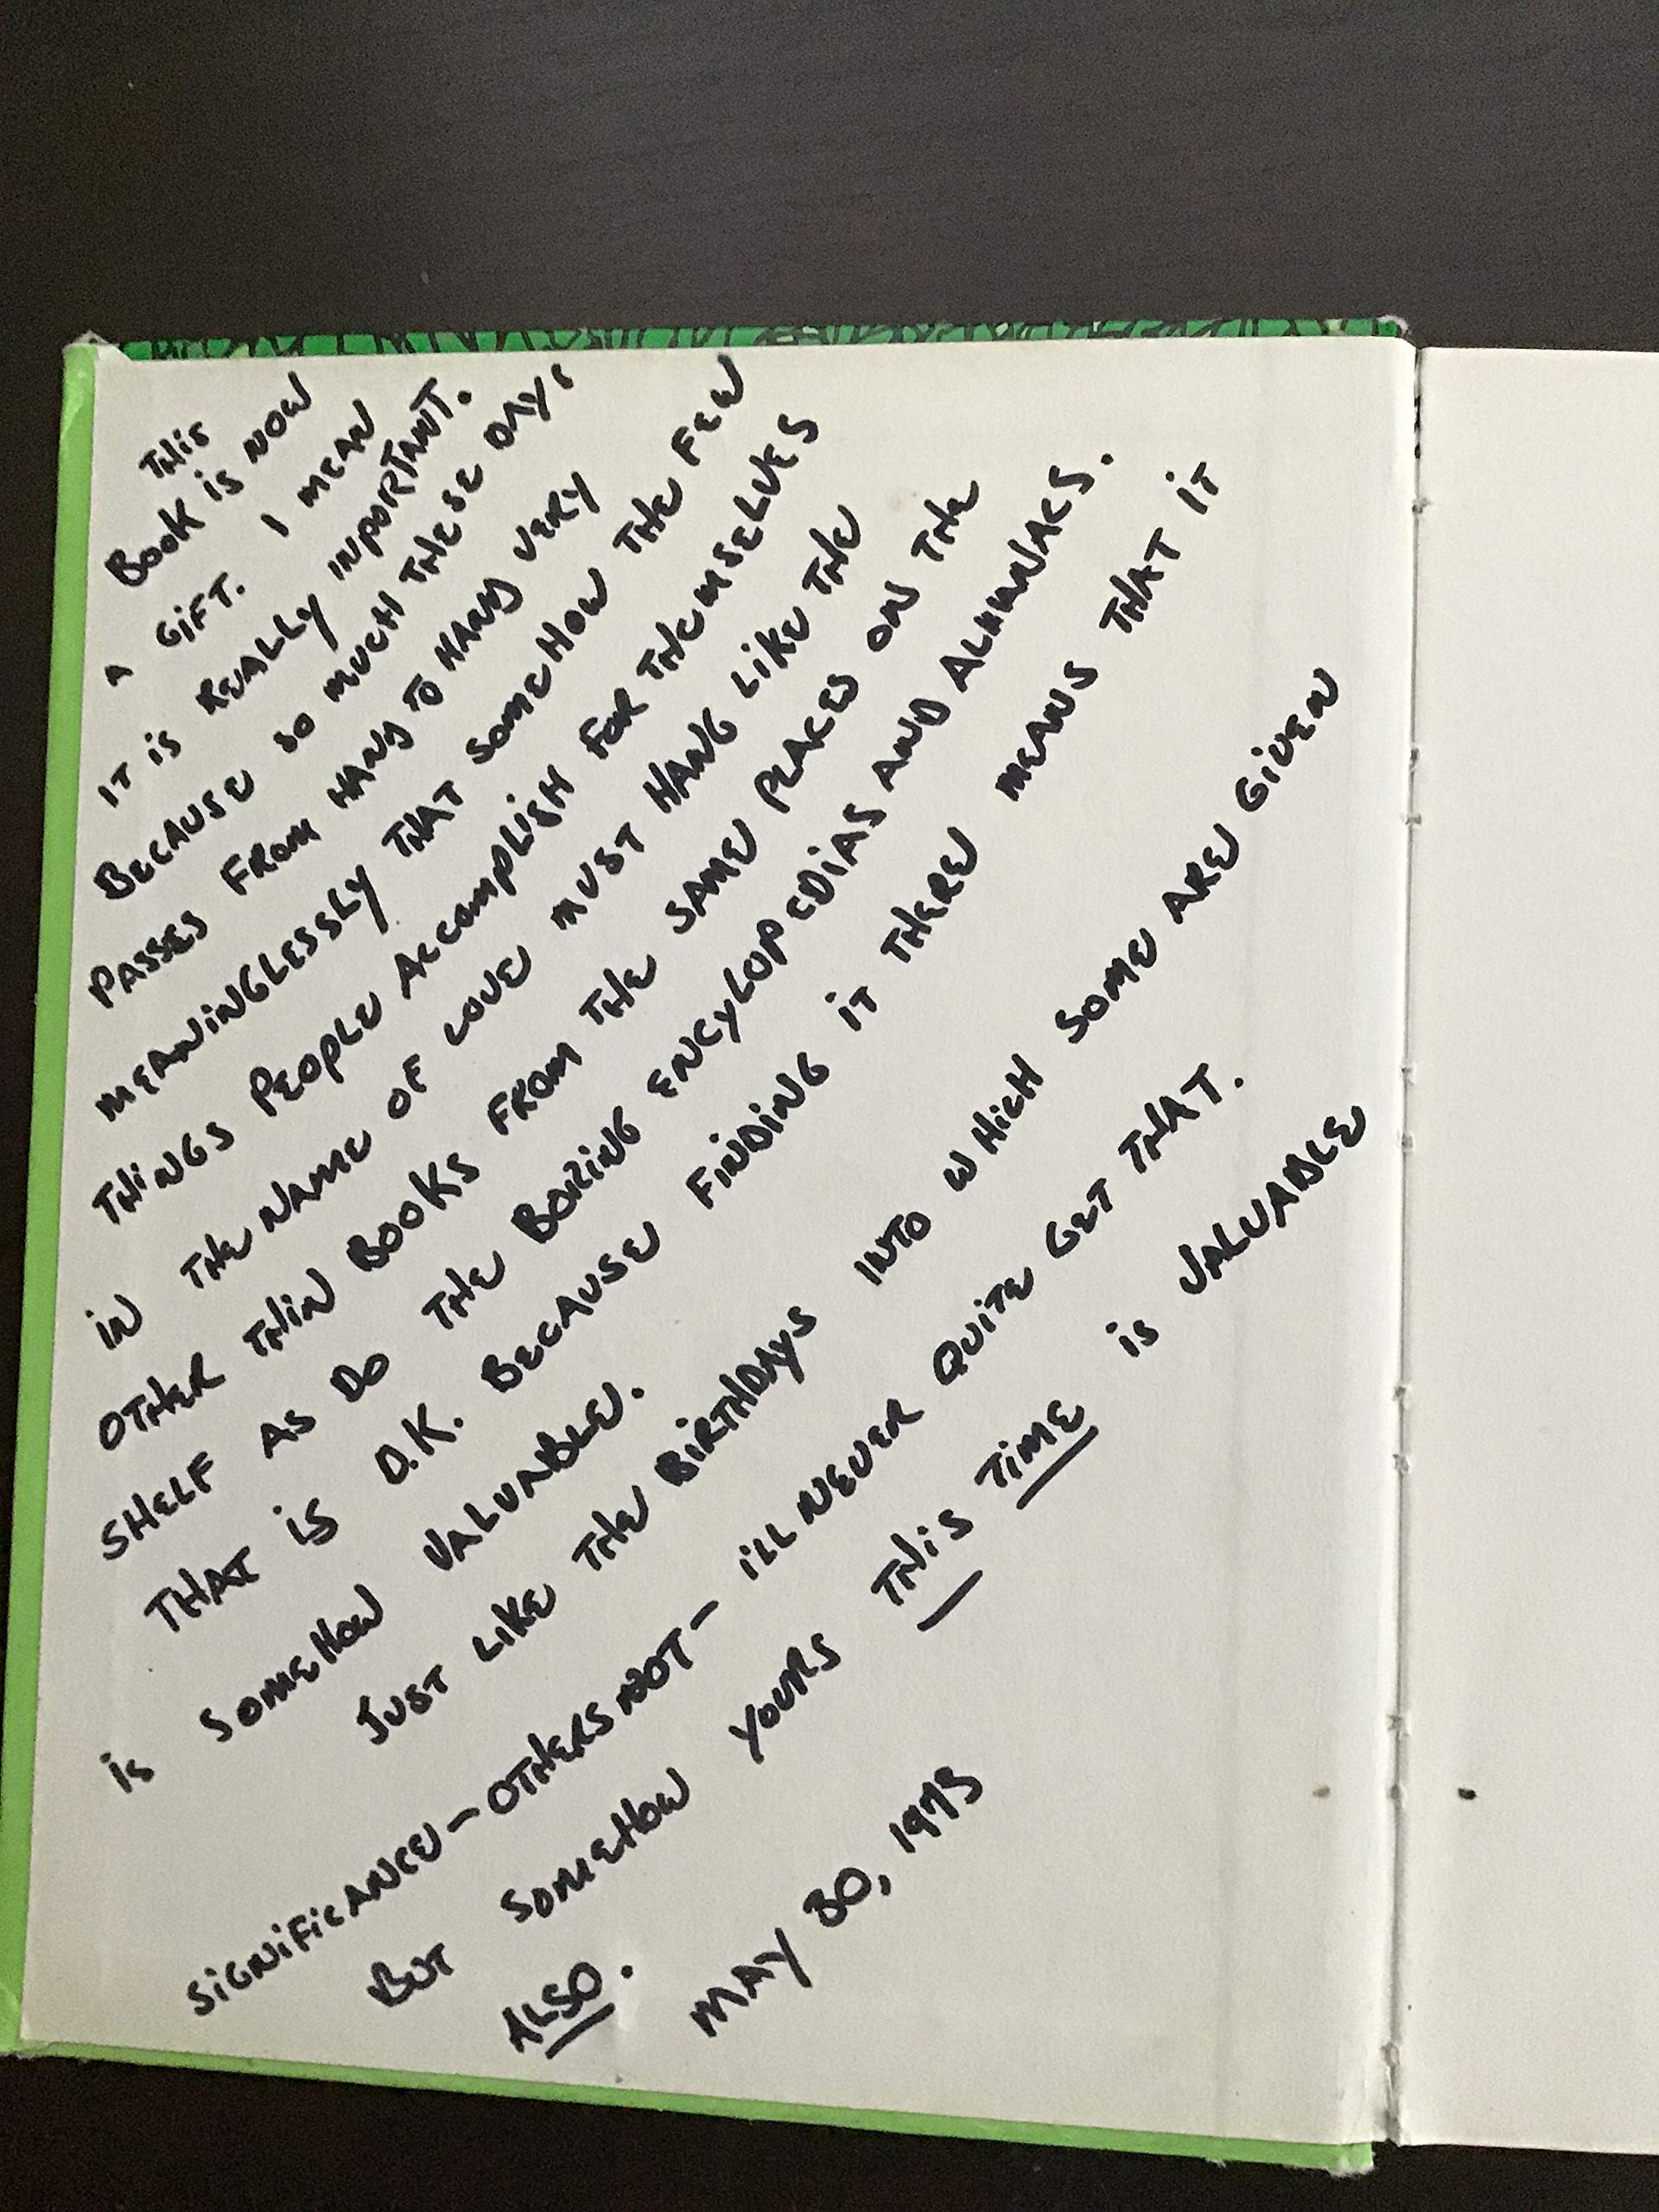 THIS
BOOK IS NOW
A GIFT. I MEAN
IT IS REALLY INPORTANT.
BECAUSE SO MUCH THESE DAYS
PASSES FROM HAND TO HAND VERY
MEANINGLESSLY THAT SOMEHOW THE FEW
THINGS PEOPLE ACCOMPLISH FOR THEMSELVES
IN THE NAME OF LOVE MUST HANG LIKE THE
OTHER THIN BOOKS FROM THE SAME PLACES ON THE
SHELF AS DO THE BORING ENCYLOPEDIAS AND ALMANACS.
THAT IS O.K. BECAUSE FINDING IT THERE MEANS THAT IT
IS SOMEHOW VALUABLE.
JUST LIKE THE BIRTHDAYS INTO WHICH SOME ARE GIVEN
SIGNIFICANCE - OTHERS NOT - ILL NEVER QUITE GET THAT.
BUT SOMEHOW YOURS THIS TIME IS VALUABLE
ALSO.
MAY 30, 1975